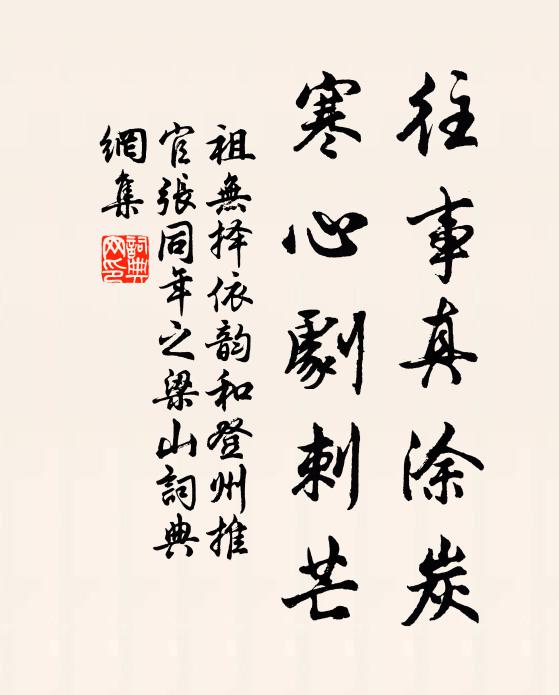 往事真涂炭
寒心劇刺芒
祖無择依韵和登州推
官張同年之梁山詞典
網集
詞典
网印